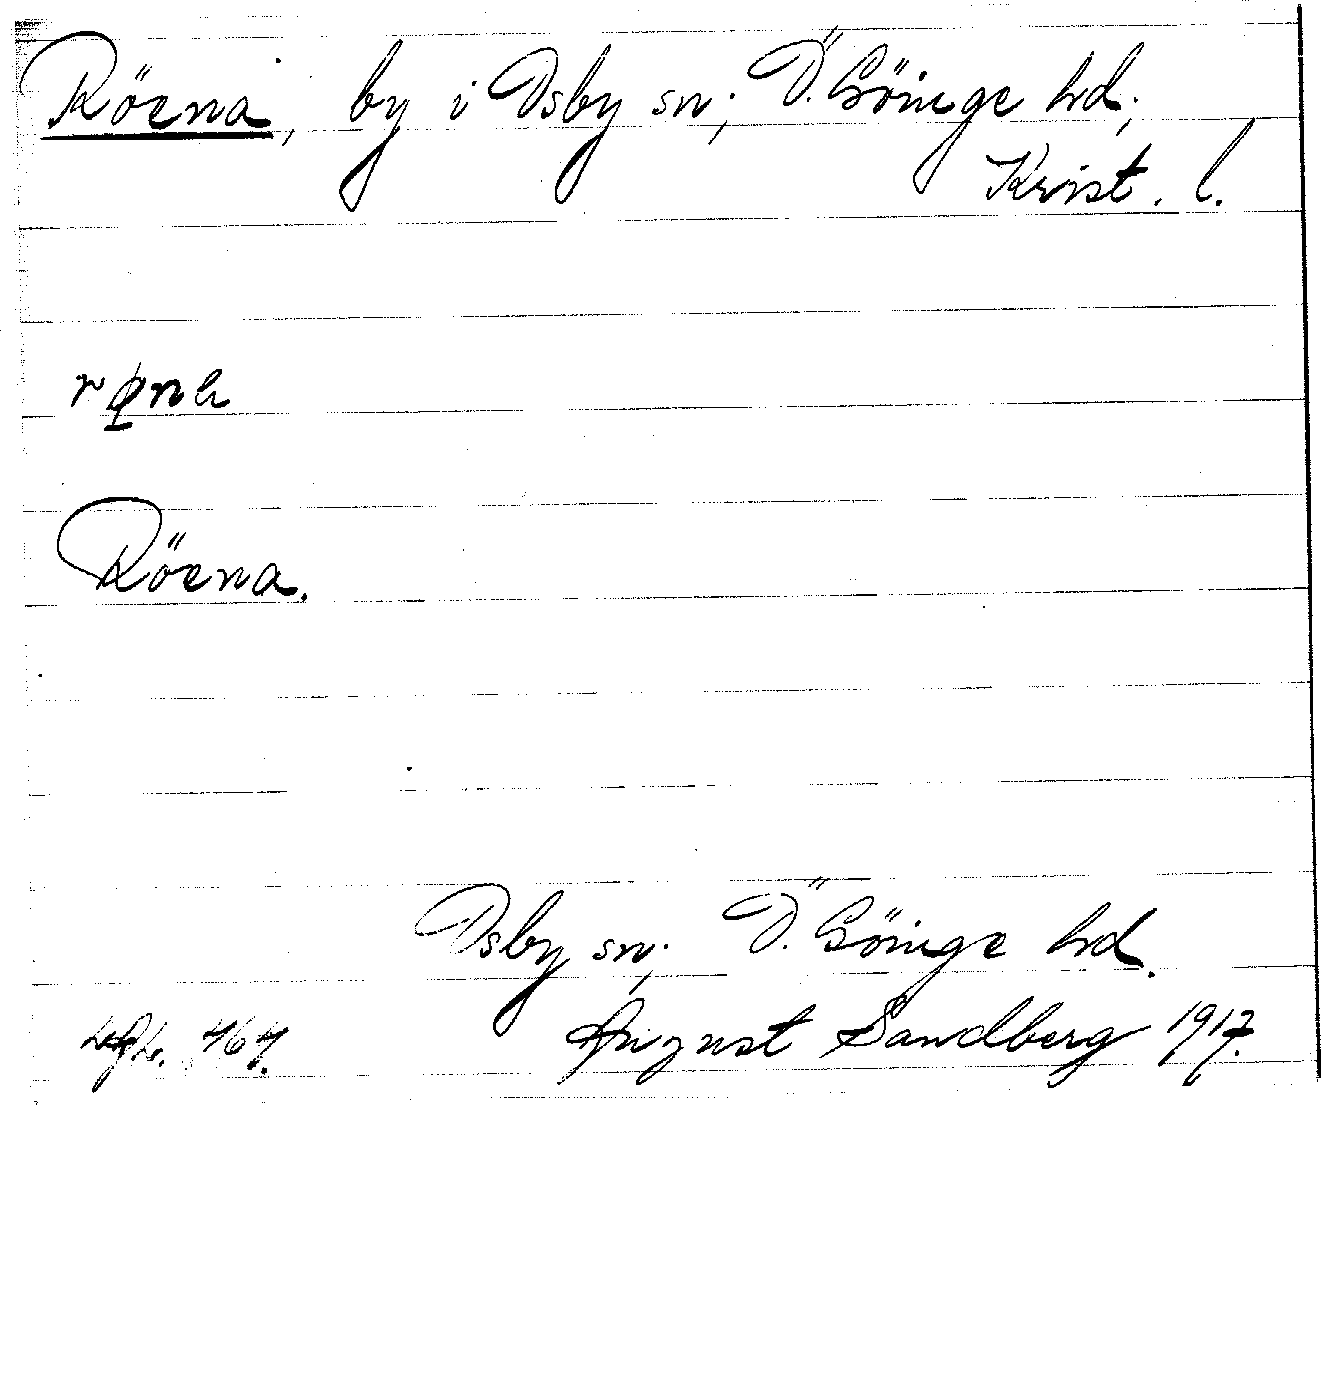 Röena, by i Osby sn; Ö. Göinge hd;
Krist. l.
Röena.
Osby sn; Ö. Göinge hd.
464. August Sandberg 1917.